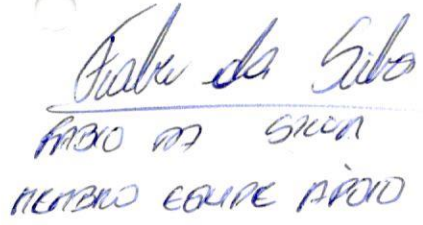 Fabio da Silva
FABIO DA SILVA
MEMBRO EQUIPE APOIO